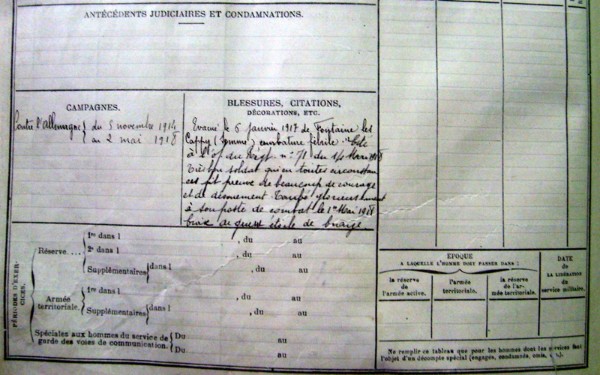 ANTÉCÉDENTS JUDICIAIRES ET CONDAMNATIONS.
CAMPAGNES.
Contre l'Allemagne } du 5 novembre 1914
au 2 mai 1918
BLESSURES, CITATIONS,
DÉCORATIONS, ETC.
Evacué le 6 janvier 1917 de Fontaine les
Cappy (Somme) courbature fébrile. Cité
à l'o/ du Régt n° 71 du 14 Mai 1918
Très bon soldat qui en toutes circonstances
a fait preuve de beaucoup de courage
et de dévouement Tombé glorieusement
à son poste de combat le 1er Mai 1918
Croix de guerre étoile de bronze
PÉRIODES D'EXERCICES.
Réserve....
1re dans l , du au
2e dans l , du au
Supplémentaires { dans l , du au
, du au
Armée territoriale.
1re dans l , du au
Supplémentaires { dans l , du au
, du au
Spéciales aux hommes du service de garde des voies de communication. { Du au
Du au
ÉPOQUE
A LAQUELLE L'HOMME DOIT PASSER DANS :
DATE
DE LA LIBÉRATION
du
service militaire.
la réserve
de
l'armée active.
l'armée
territoriale.
la réserve
de l'ar-
mée territoriale.
Ne remplir ce tableau que pour les hommes dont les services font
l'objet d'un décompte spécial (engagés, condamnés, omis, etc.).